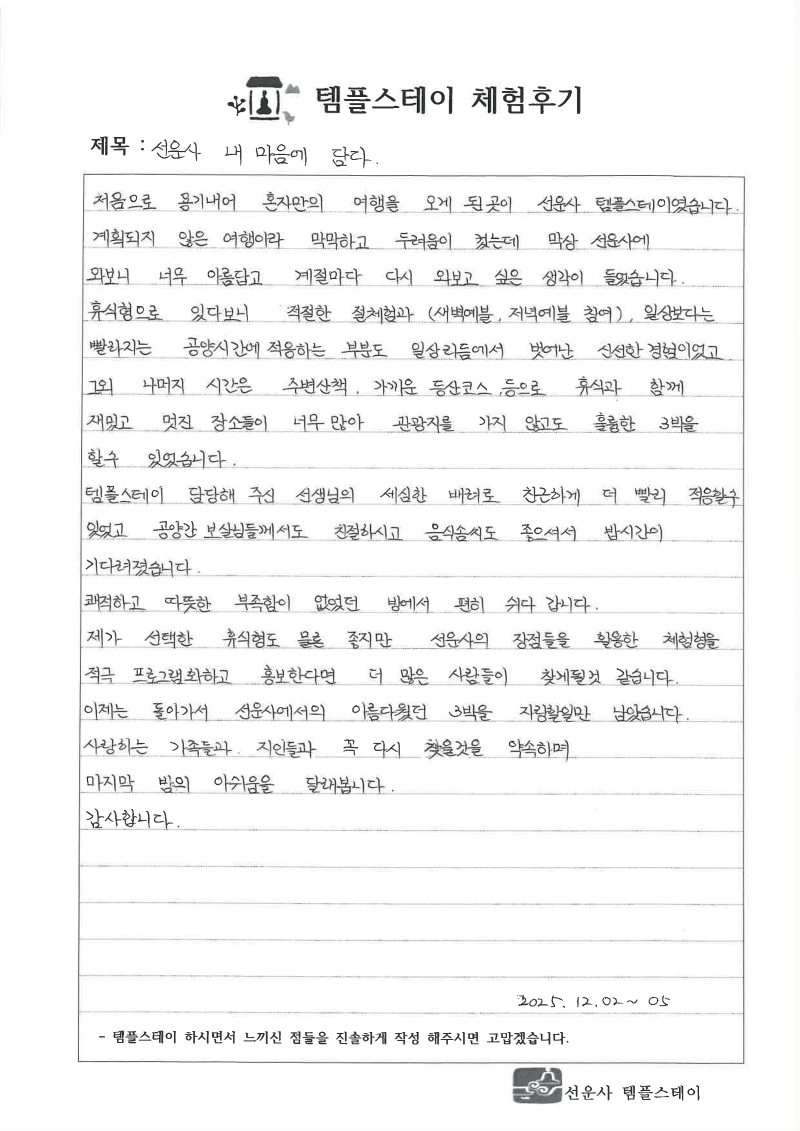 템플스테이 체험후기
제목 : 선운사 내 마음에 담다.
처음으로 용기내어 혼자만의 여행을 오게 된 곳이 선운사 템플스테이였습니다.
계획되지 않은 여행이라 막막하고 두려움이 컸는데 막상 선운사에
와보니 너무 아름답고 계절마다 다시 와보고 싶은 생각이 들었습니다.
휴식형으로 있다보니 적절한 절체험과 (새벽예불, 저녁예불 참여), 일상보다는
빨라지는 공양시간에 적응하는 부분도 일상리듬에서 벗어난 신선한 경험이었고
그외 나머지 시간은 주변산책, 가까운 등산코스 등으로 휴식과 함께
재밌고 멋진 장소들이 너무 많아 관광지를 가지 않고도 훌륭한 3박을
할수 있었습니다.
템플스테이 담당해 주신 선생님의 세심한 배려로 친근하게 더 빨리 적응할수
있었고 공양간 보살님들께서도 친절하시고 음식솜씨도 좋으셔서 밥시간이
기다려졌습니다.
쾌적하고 따뜻한 부족함이 없었던 방에서 편히 쉬다 갑니다.
제가 선택한 휴식형도 물론 좋지만 선운사의 장점들을 활용한 체험형을
적극 프로그램화하고 홍보한다면 더 많은 사람들이 찾게될것 같습니다.
이제는 돌아가서 선운사에서의 아름다웠던 3박을 자랑할일만 남았습니다.
사랑하는 가족들과, 지인들과 꼭 다시 찾을것을 약속하며
마지막 밤의 아쉬움을 달래봅니다.
감사합니다.
2025. 12. 02 ~ 05
- 템플스테이 하시면서 느끼신 점들을 진솔하게 작성 해주시면 고맙겠습니다.
선운사 템플스테이